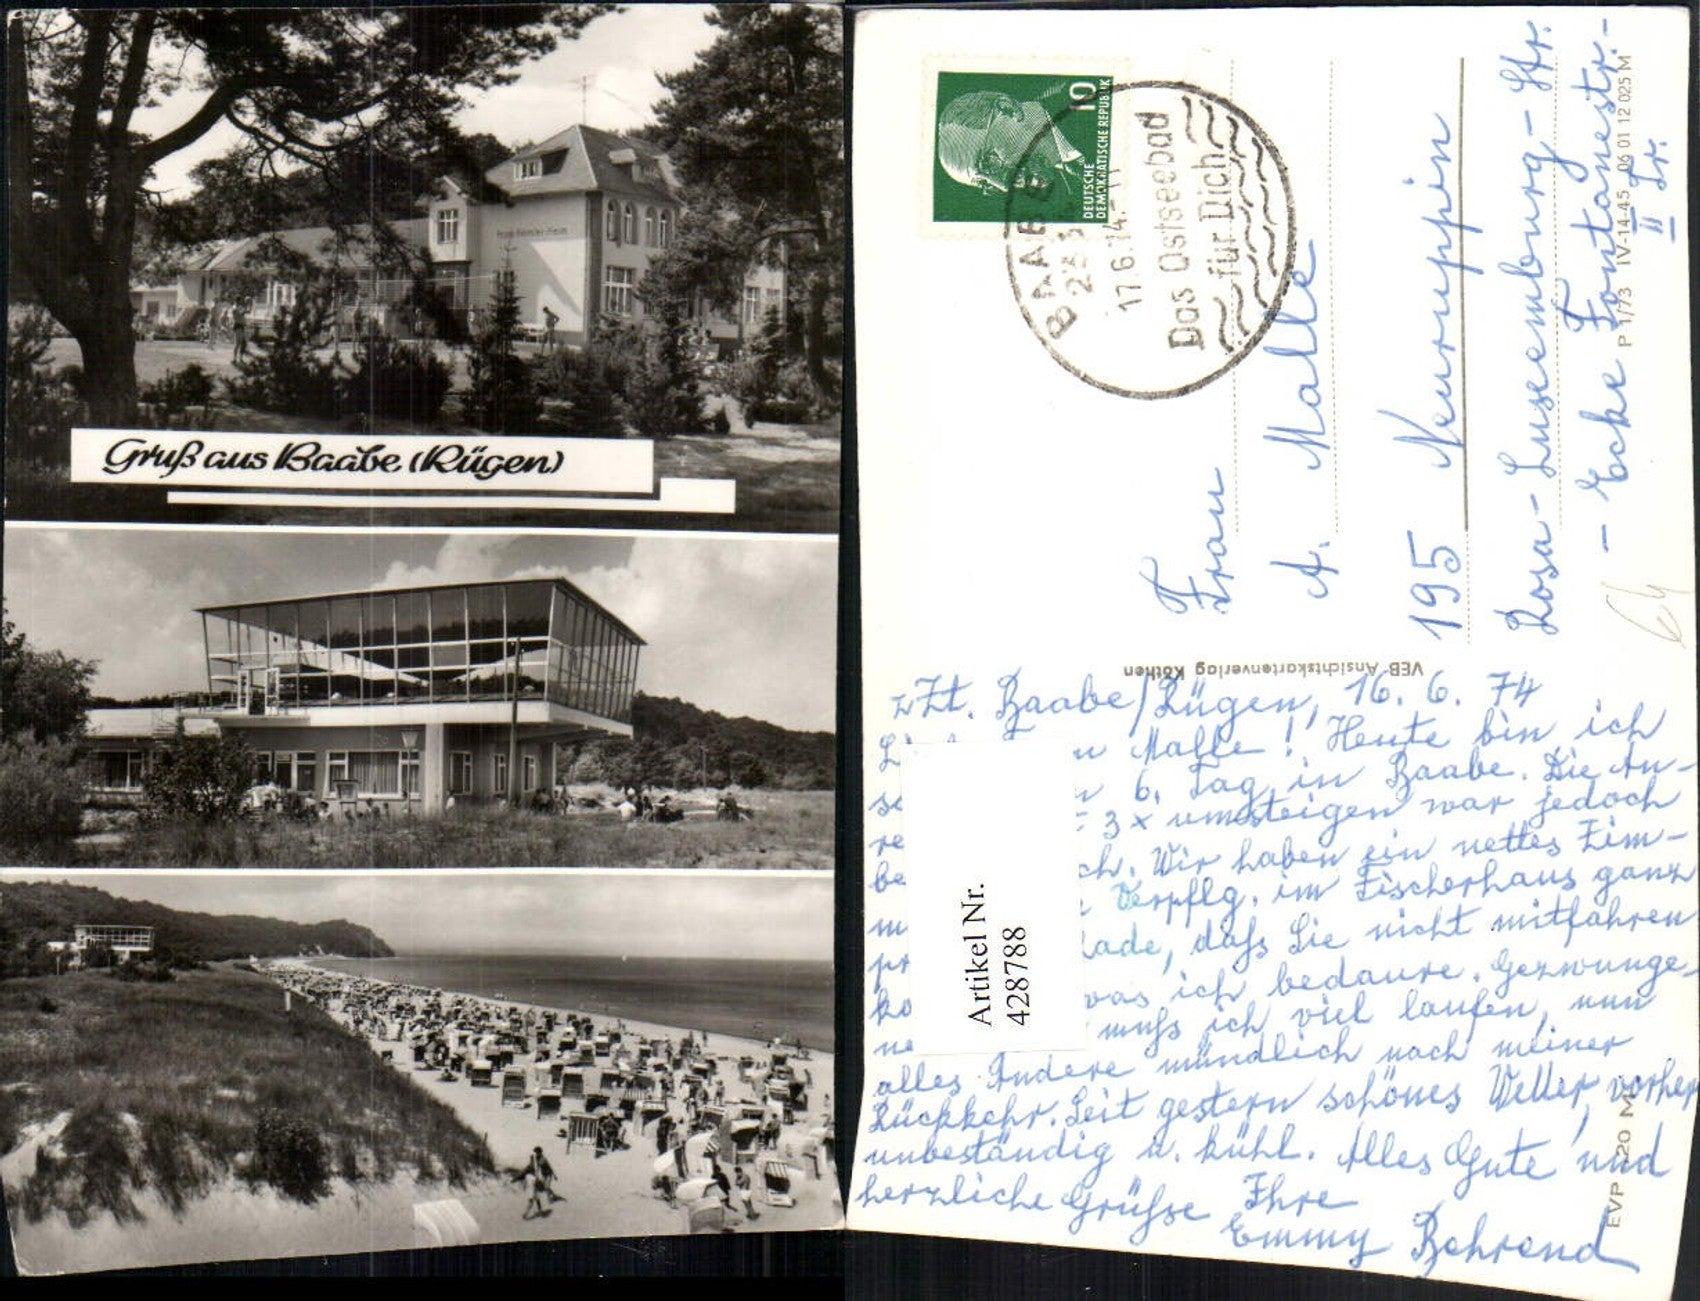 Gruß aus Baabe (Rügen)
10
DEUTSCHE
DEMOKRATISCHE REPUBLIK
BAABE
17.6.74.-11
Das Ostseebad
für Dich
Frau
A. Malle
195 Neuruppin
Rosa-Luxemburg-Str.
- Ecke Fontanestr.-
II Tr.
P 1/73 IV-14-45 06 01 12 025 M
VEB Ansichtskartenverlag Köthen
zZt. Baabe/Rügen, 16.6.74
Malle! Heute bin ich
6. Tag in Baabe. Die An-
3x umsteigen war jedoch
ch. Wir haben ein nettes Zim-
Verpflg. im Fischerhaus ganz
lade, daß Sie nicht mitfahren
was ich bedaure. Gezwunge-
muß ich viel laufen, nun
alles Andere mündlich nach meiner
Rückkehr. Seit gestern schönes Wetter, vorher
unbeständig u. kühl. Alles Gute und
herzliche Grüße Ihre
Emmy Behrend
EVP -,20 M
Artikel Nr.
428788